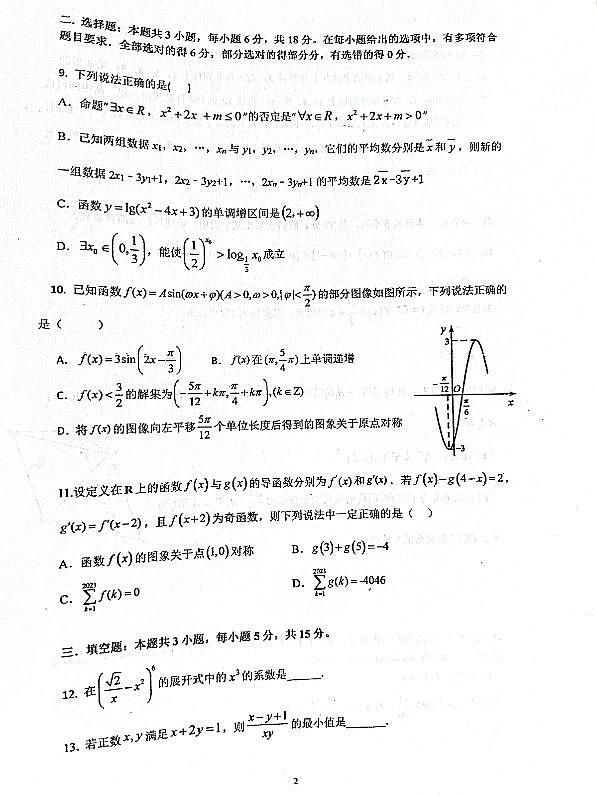 二. 选择题：本题共3小题，每小题6分，共18分。在每小题给出的选项中，有多项符合
题目要求．全部选对的得6分，部分选对的得部分分，有选错的得0分．
9. 下列说法正确的是( )
A．命题"∃x∈R，x²+2x+m≤0"的否定是"∀x∈R，x²+2x+m>0"
B．已知两组数据 x₁，x₂，…，xₙ与 y₁，y₂，…，yₙ，它们的平均数分别是 x̄ 和 ȳ，则新的
一组数据 2x₁﹣3y₁+1，2x₂﹣3y₂+1，…，2xₙ﹣3yₙ+1 的平均数是 2x̄-3ȳ+1
C．函数 y=lg(x²-4x+3)的单调增区间是(2,+∞)
D．∃x₀∈(0,1/3)，能使(1/2)^(x₀)>log_(1/3) x₀成立
10. 已知函数 f(x)=Asin(ωx+φ)(A>0,ω>0,|φ|<π/2)的部分图像如图所示，下列说法正确的
是（ ）
A．f(x)=3sin(2x-π/3) B．f(x)在(π,5/4π)上单调递增
C．f(x)<3/2的解集为(-5π/12+kπ,π/4+kπ),(k∈Z)
D．将 f(x)的图像向左平移5π/12个单位长度后得到的图象关于原点对称
y
3
-π/12
O
π/6
x
-3
11.设定义在R上的函数 f(x)与g(x)的导函数分别为f′(x)和g′(x)．若f(x)-g(4-x)=2，
g′(x)=f′(x-2)，且f(x+2)为奇函数，则下列说法中一定正确的是（ ）
A．函数f(x)的图象关于点(1,0)对称 B．g(3)+g(5)=-4
C．∑_(k=1)^(2023) f(k)=0 D．∑_(k=1)^(2023) g(k)=-4046
三．填空题：本题共3小题，每小题5分，共15分。
12. 在(√2/x-x²)⁶的展开式中的x³的系数是______.
13. 若正数x,y满足x+2y=1，则(x-y+1)/(xy)的最小值是______.
2